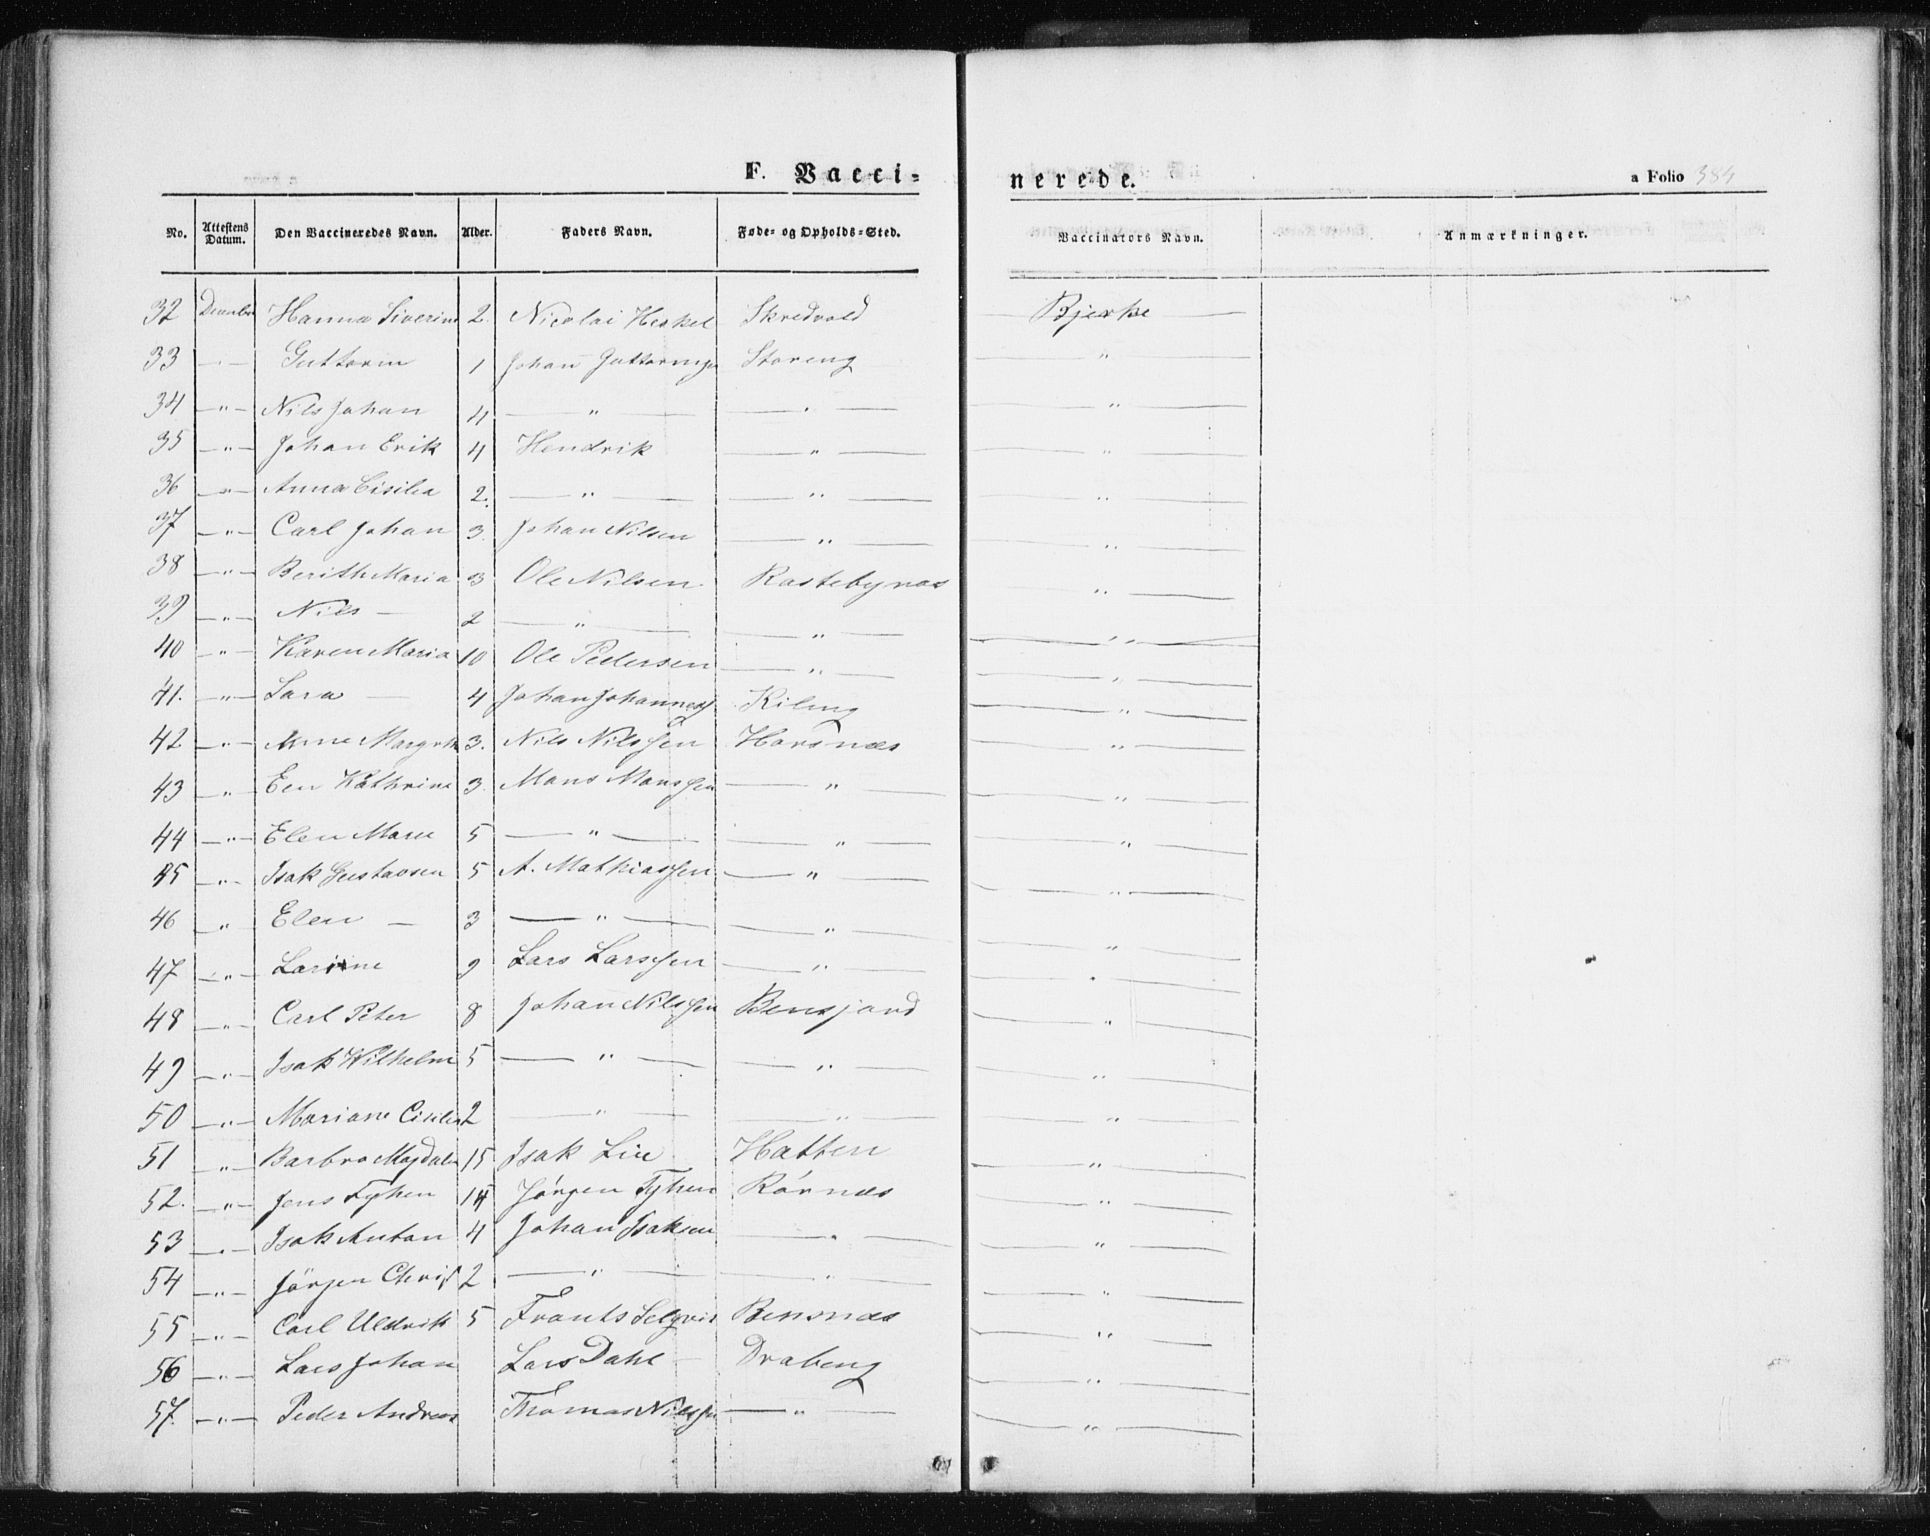 F. Vacci=nerede. a Folio 384
No. Attestens Datum. Den Vaccineredes Navn. Alder. Faders Navn. Føde- og Opholds-Sted. Vaccinators Navn. Anmærkninger.
32 December Hanna Siverine 2. Nicolai Heskel Skredvold Bjerke
33 Guttorm 1 Johan Guttormsen Storeng "
34 " Nils Johan 4 " " "
35 " Johan Erik 4 Hendrik " "
36 " Anna Cisilia 2. " " "
37 " Carl Johan 3. Johan Nilsen " "
38 " Berith Maria 3 Ole Nilsen Rastebynæs "
39 " Nils 2 " " "
40 " Karen Maria 10 Ole Pedersen " "
41. " Sara 4 Johan Johannes Kileng "
42 " Anne Margreth 3. Nils Nilssen Horsnæs "
43 " Een Kathrine 3 Mons Monssen " "
44 " Elen Marie 5 " " "
45 " Isak Gustavsen 5 A. Mathiassen " "
46 " Elen 3 " " "
47 " Larine 9 Lars Larssen " "
48 " Carl Peter 8 Johan Nilssen Bensjord "
49 " Isak Wilhelm 5 " " "
50 " Mariane Cisilia 2 " " "
51 " Barbro Majdale 15 Isak Lie Hatten "
52. " Jens Fyhen 14 Jørgen Fyhen Rørnæs "
53 " Isak Anton 4 Johan Isaksen " "
54 " Jørgen Christ 2 " " "
55 " Carl Uldrik 5 Frants Selqvis Bensnæs "
56 " Lars Johan Lars Dahl Drabeng "
57. " Peder Andreas Thomas Nilssen " "